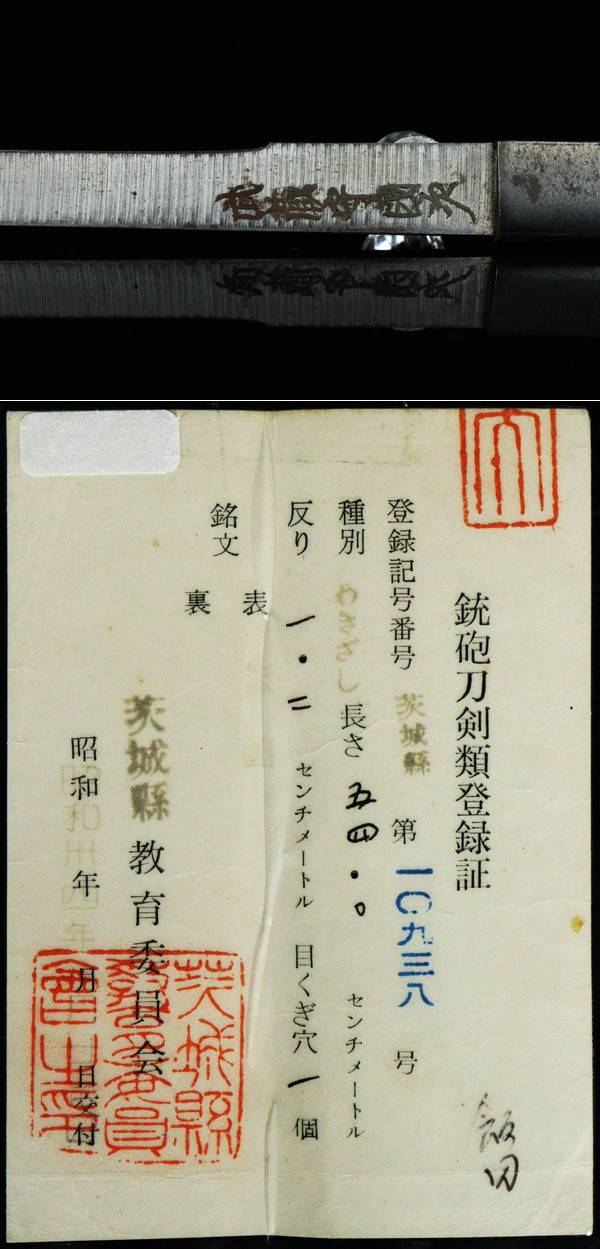 武蔵守國次
銃砲刀剣類登録証
登録記号番号 茨城縣 第一〇九三八号
種別 わきざし 長さ 五四.〇 センチメートル
反り 一.二 センチメートル 目くぎ穴 一 個
銘文 表
裏
茨城縣教育委員会
昭和 年 月 日交付
茨城縣教育委員會之印
飯田